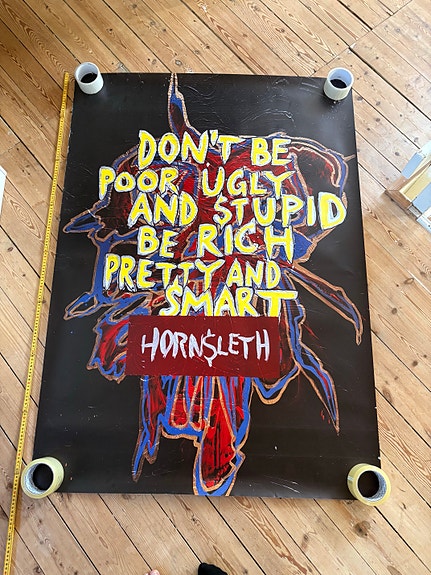 DON'T BE
POOR, UGLY
AND $TUPID
BE RICH
PRETTY AND
$MART
HORN$LETH